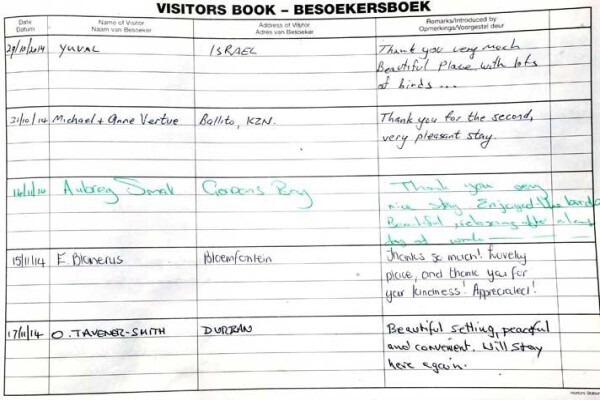 VISITORS BOOK – BESOEKERSBOEK
Date Name of Visitor Address of Visitor Remarks/Introduced by
Datum Naam van Besoeker Adres van Besoeker Opmerkings/Voorgestel deur
29/10/2014 YUVAL ISRAEL Thank you very much
Beautiful Place with lots
of birds ...
31/10/14 Michael + Anne Vertue Ballito, KZN. Thank you for the second,
very pleasant stay.
14/11/14 Aubrey Smal Gordons Bay Thank you very
nice stay Enjoyed the
Beautiful, relaxing after a long
day at work
15/11/14 E. Blonerus Bloemfontein Thanks so much! Lovely
place, and thank you for
your kindness! Appreciated!
17/11/14 O. TAVENER-SMITH DURBAN Beautiful setting, peaceful
and convenient. Will stay
here again.